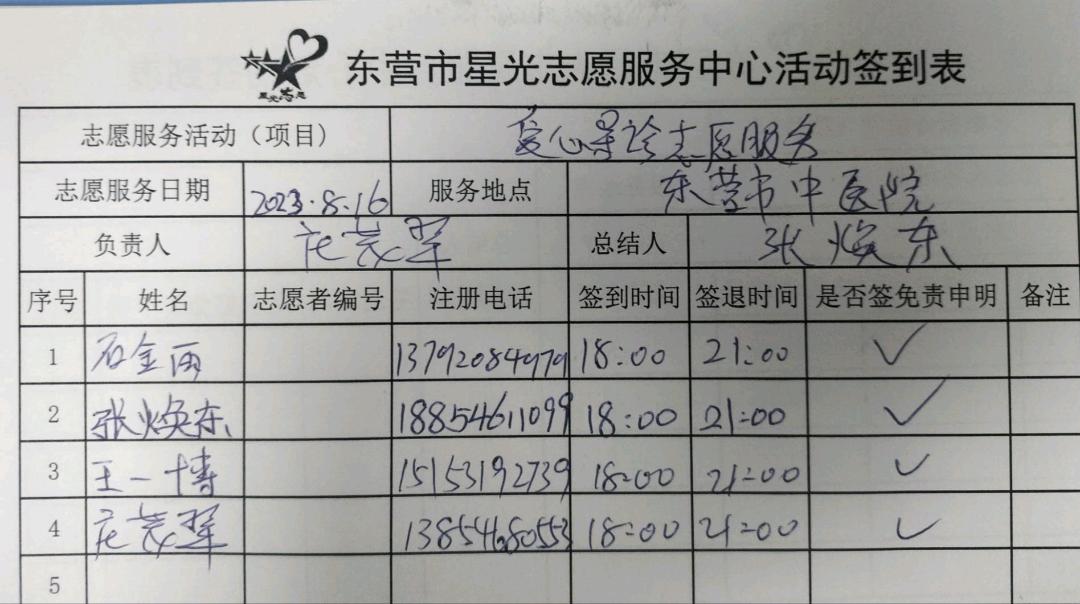 东营市星光志愿服务中心活动签到表
志愿服务活动（项目） 爱心导诊志愿服务
志愿服务日期 2023.8.16 服务地点 东营市中医院
负责人 庄茂翠 总结人 张焕东
序号 姓名 志愿者编号 注册电话 签到时间 签退时间 是否签免责申明 备注
1 石金丽 13792084979 18:00 21:00 ✓
2 张焕东 18854611099 18:00 21:00 ✓
3 王一博 15153192739 18:00 21:00 ✓
4 庄茂翠 13854680553 18:00 21:00 ✓
5